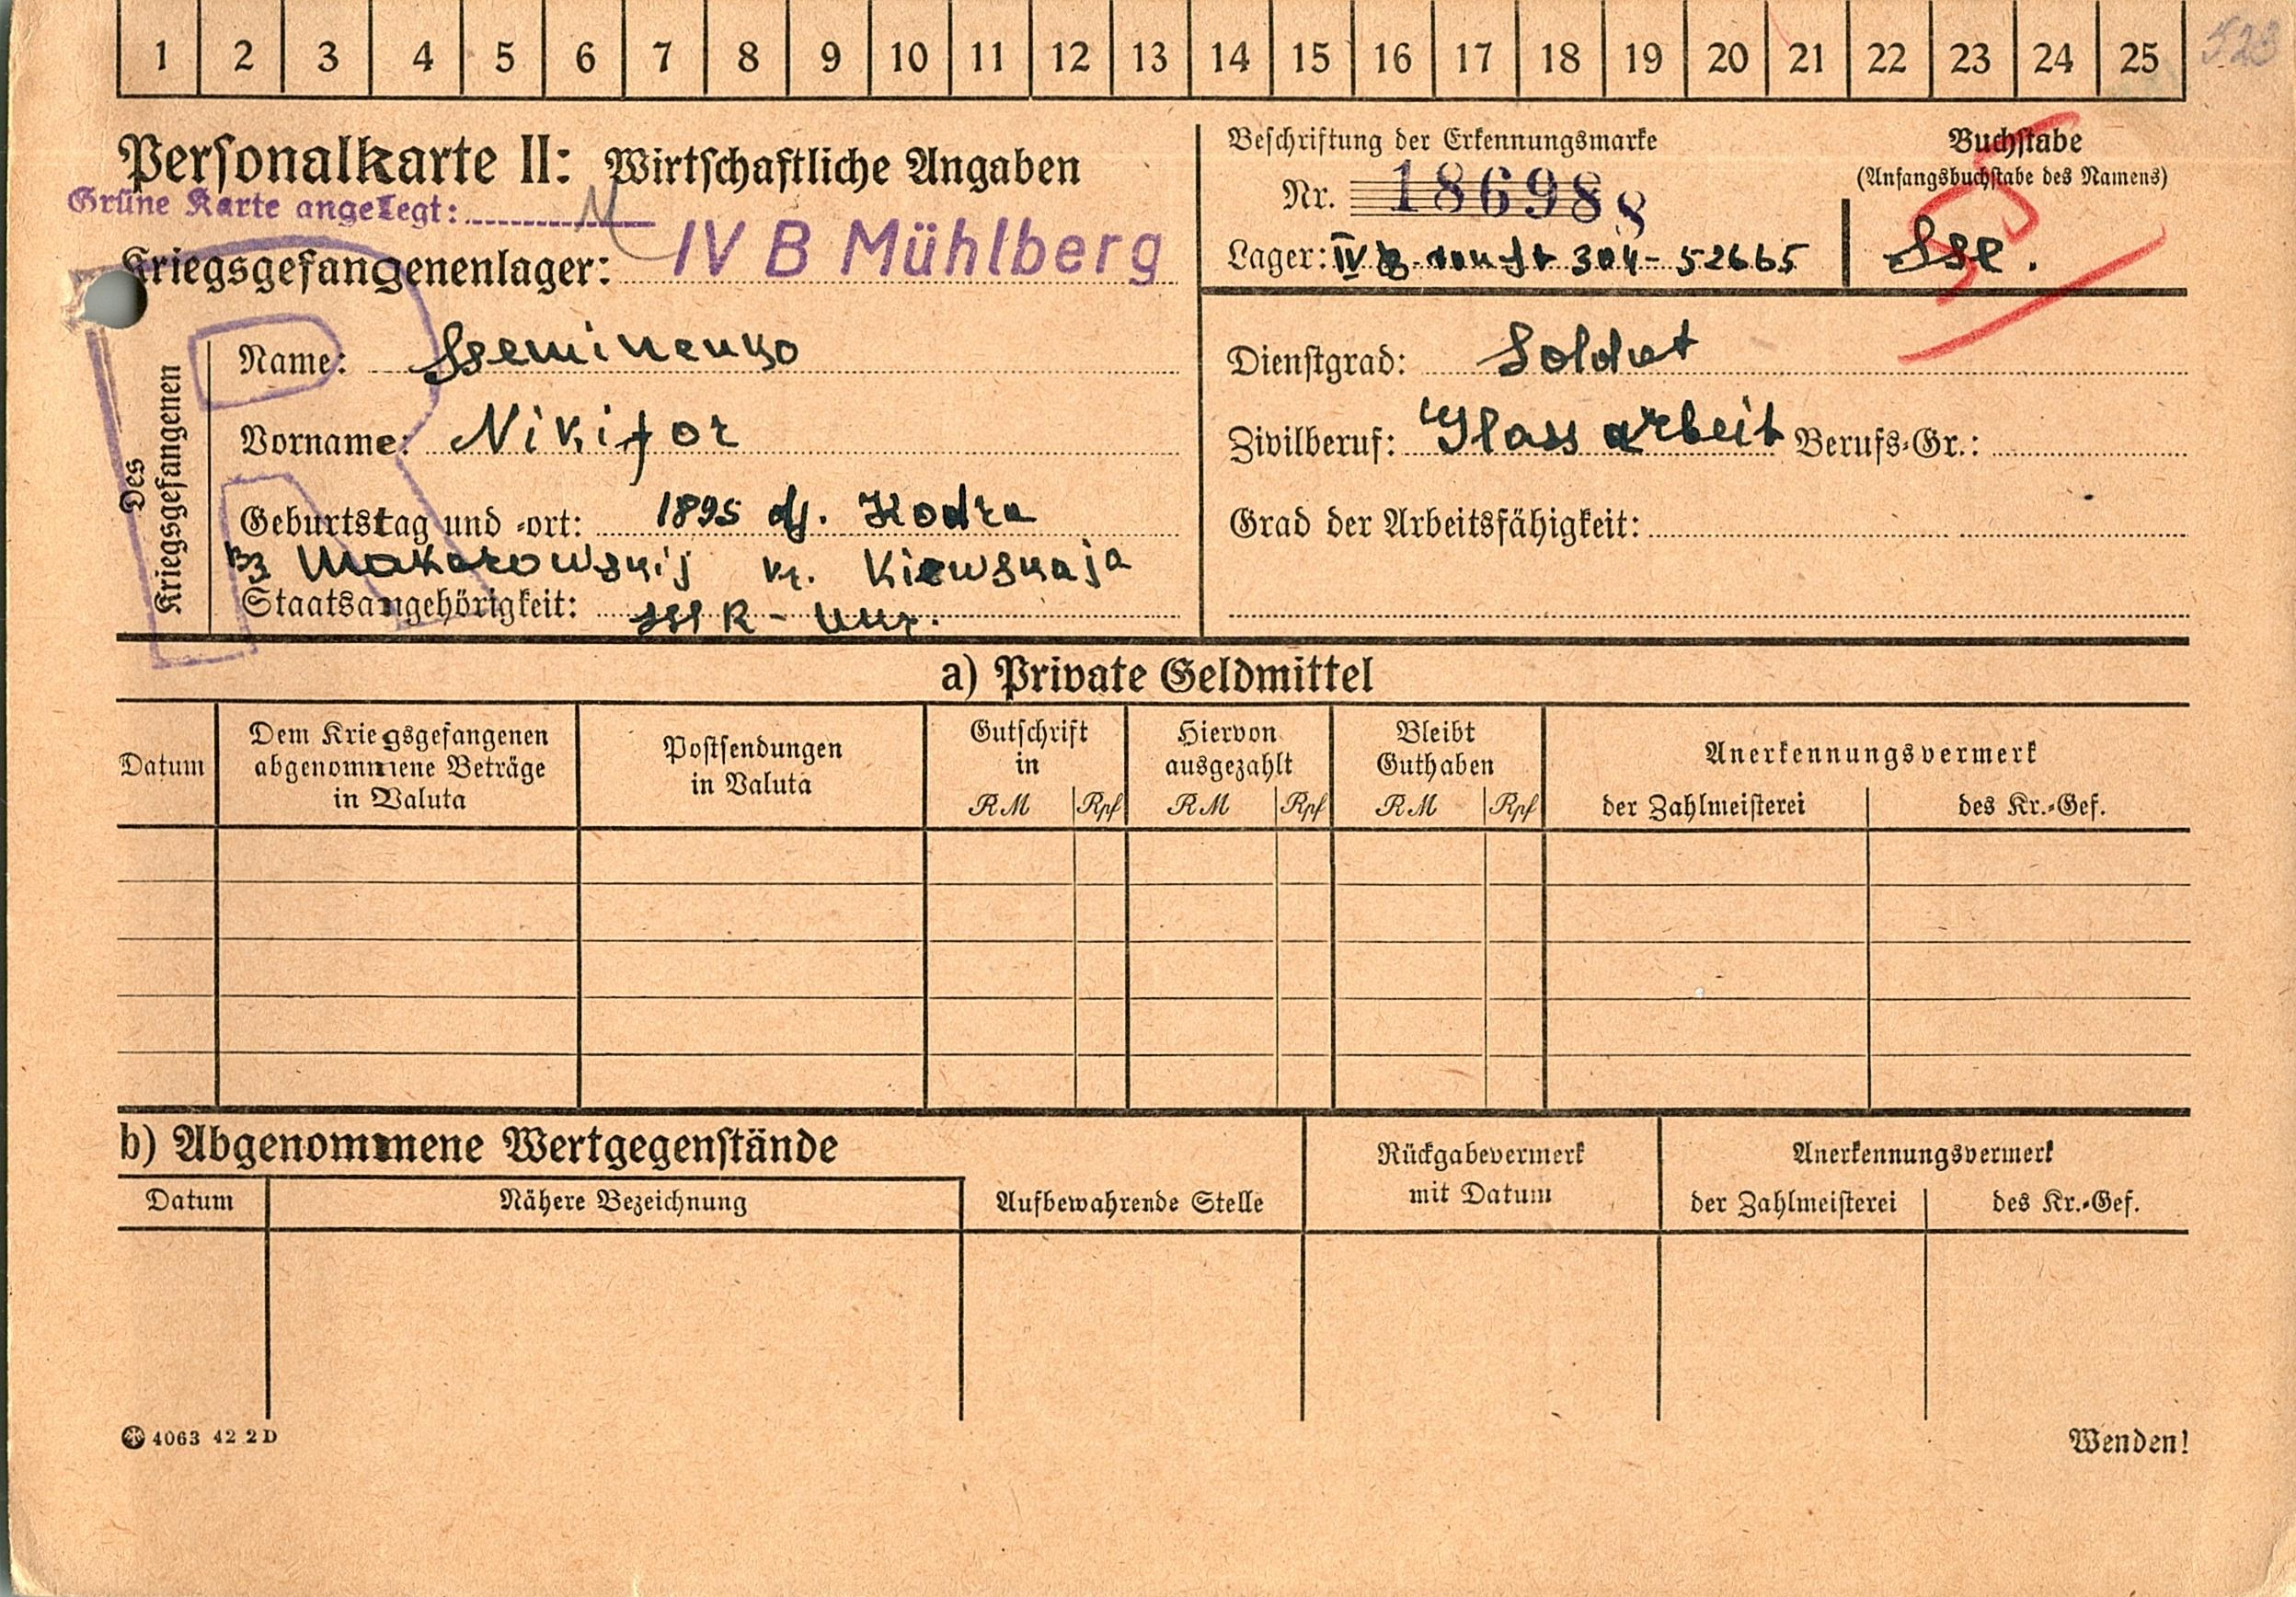 1 2 3 4 5 6 7 8 9 10 11 12 13 14 15 16 17 18 19 20 21 22 23 24 25 523
Personalkarte II: Wirtschaftliche Angaben
Grüne Karte angelegt:
Kriegsgefangenenlager: IV B Mühlberg
Beschriftung der Erkennungsmarke
Nr. 186988
Lager: IV B 304-52665
Buchstabe
(Anfangsbuchstabe des Namens)
Sse.
Des Kriegsgefangenen
Name: Sseminenko
Vorname: Nikifor
Geburtstag und -ort: 1895 df. Kodra
Bz Makarowskij kr. Kiewskaja
Staatsangehörigkeit: SSSR - Ukr.
Dienstgrad: Soldat
Zivilberuf: Glassarbeit Berufs-Gr.:
Grad der Arbeitsfähigkeit:
a) Private Geldmittel
Datum
Dem Kriegsgefangenen
abgenommene Beträge
in Valuta
Postsendungen
in Valuta
Gutschrift
in
RM Rpf
Hiervon
ausgezahlt
RM Rpf
Bleibt
Guthaben
RM Rpf
Anerkennungsvermerk
der Zahlmeisterei des Kr.-Gef.
b) Abgenommene Wertgegenstände
Datum Nähere Bezeichnung Aufbewahrende Stelle
Rückgabevermerk
mit Datum
Anerkennungsvermerk
der Zahlmeisterei des Kr.-Gef.
4063 42 2 D
Wenden!